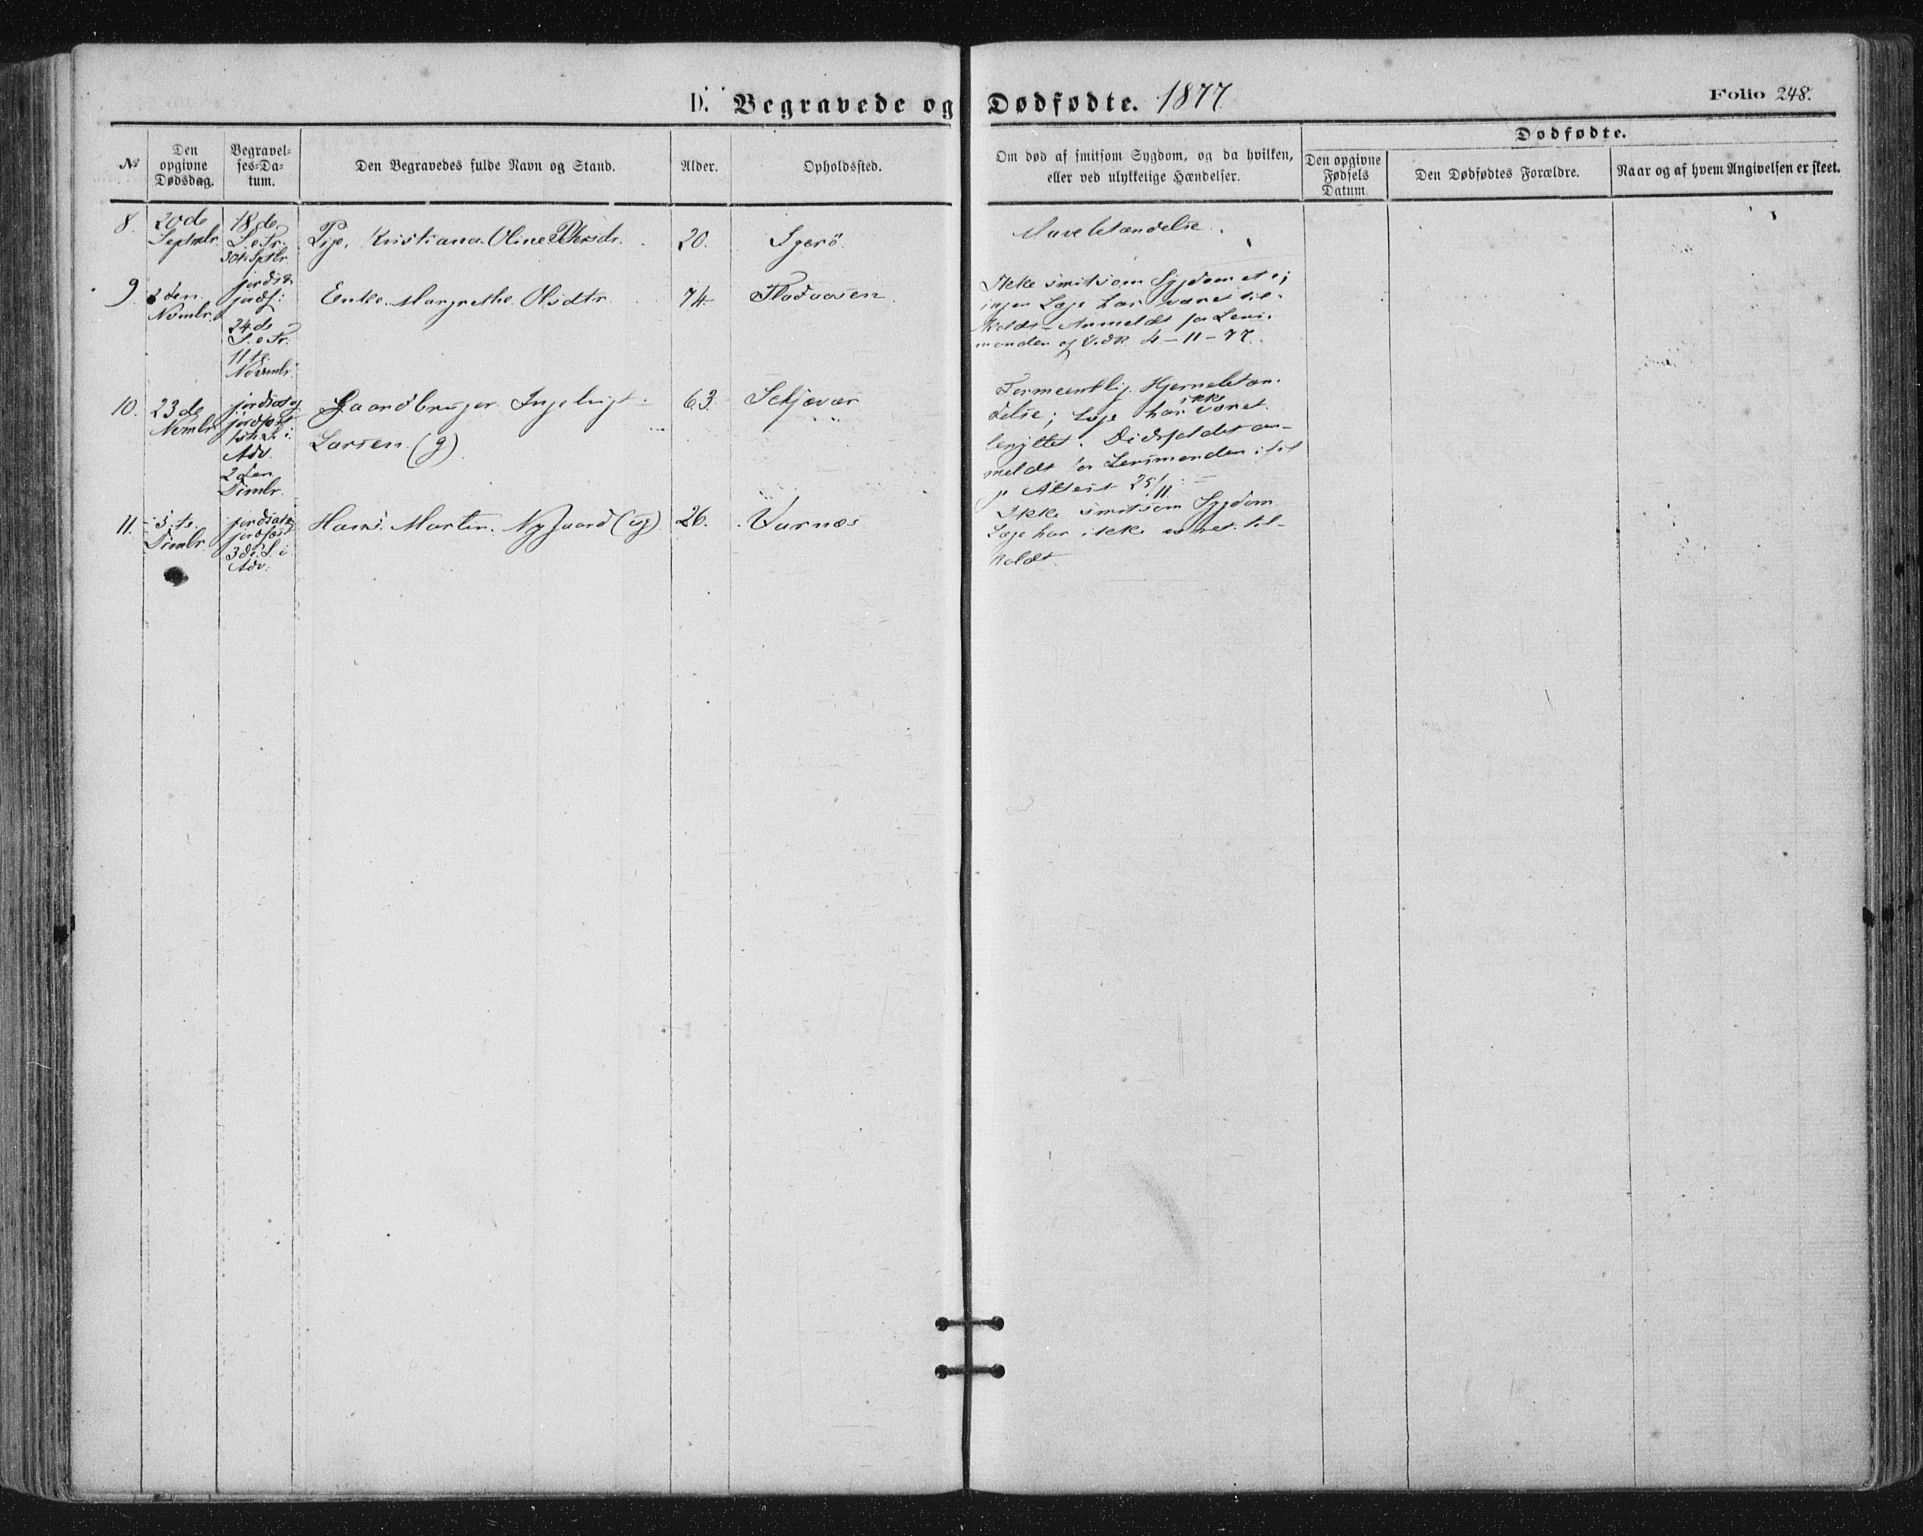 D. Begravede og Dødfødte. 1877
Folio 248.
№
Den opgivne Dødsdag.
Begravelses-Datum.
Den Begravedes fulde Navn og Stand.
Alder.
Opholdssted.
Om død af smitsom Sygdom, og da hvilken,
eller ved ulykkelige Hændelser.
Dødfødte.
Den opgivne Fødsels Datum.
Den Dødfødtes Forældre.
Naar og af hvem Angivelsen er skeet.
8. 20de Septmbr. 18de S. e. Tr. 30te Sptbr. Pige, Kristiana Oline Petersdr. 20. Mavebetændelse.
9 Novmbr. 24de S. e. Tr. 11te Novmbr. Enke Margrethe Olsdtr. 74 Fladaasen
Ikke smitsom Sygdom
ingen Læge har været til-
kaldt. Anmeldt for Lens-
manden 4-11-77.
10. 23de Nvmbr. jordsat og jordfæst 1ste S. i Adv. 2den Dcmbr. Gaardbruger Ingebrigt
Larsen (g)
63.
Formeentlig Hjernebetæn-
delse; Læge har ikke været
benyttet. Dødsfaldet an-
meldt for Lensmanden
Attest 25/11
11. 5te Dcmbr. jordsat og jordfæst 3die S. i Adv. Hans Martin Nygaard (ug) 26. Varnæs
Ikke smitsom Sygdom
Læge har ikke været til-
kaldt.